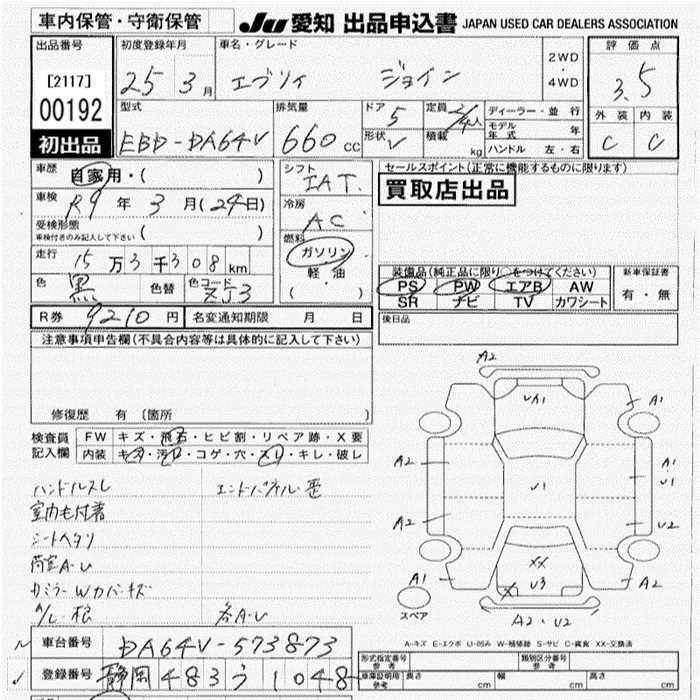 車内保管・守衛保管
JU 愛知 出品申込書 JAPAN USED CAR DEALERS ASSOCIATION
出品番号 初度登録年月 車名・グレード 評価点
[2117] 25 3月 エブリィ ジョイン 2WD・4WD 3.5
00192
初出品
型式 排気量 ドア 5 定員 ディーラー・並行 外装 内装
EBD-DA64V 660cc 形状 V 積載 kg モデル年式 年 C C
ハンドル 左・右
車歴 自家用・( )
シフト IAT
セールスポイント(正常に機能するものに限ります)
買取店出品
車検 R9年 3月(24日)
冷房 AC
受検形態 車検付きのみ記入して下さい ( )
燃料 ガソリン 軽油 ( )
走行 15万3千308km
色 黒 色替 色コード ZJ3
装備品(純正品に限り○をつけてください) 新車保証書
PS PW エアB AW 有・無
SR ナビ TV カワシート
R券 9210円 名変通知期限 月 日
後日品
注意事項申告欄(不具合内容等は具体的に記入して下さい)
修復歴 有 〔箇所
検査員記入欄 FW キズ・飛石・ヒビ割・リペア跡・X要
内装 キズ・汚レ・コゲ・穴・スレ・キレ・破レ
ハンドルスレ
室内毛付着
シートヘタリ
荷室A・U
A/L・根
各A・U
A2
UA1
A1
A2
A1
U1
U1
A2
U2
XX
A1
X
U3
A2
スペア
A2・U2
A-キズ E-エクボ U-凹み W-補修跡 S-サビ C-腐食 XX-交換済
車台番号 DA64V-573873
登録番号 静岡 483 う 1048
形式指定番号 参考 類別区分番号 参考
車庫証明用 参考 長さ cm 幅 cm 高さ cm